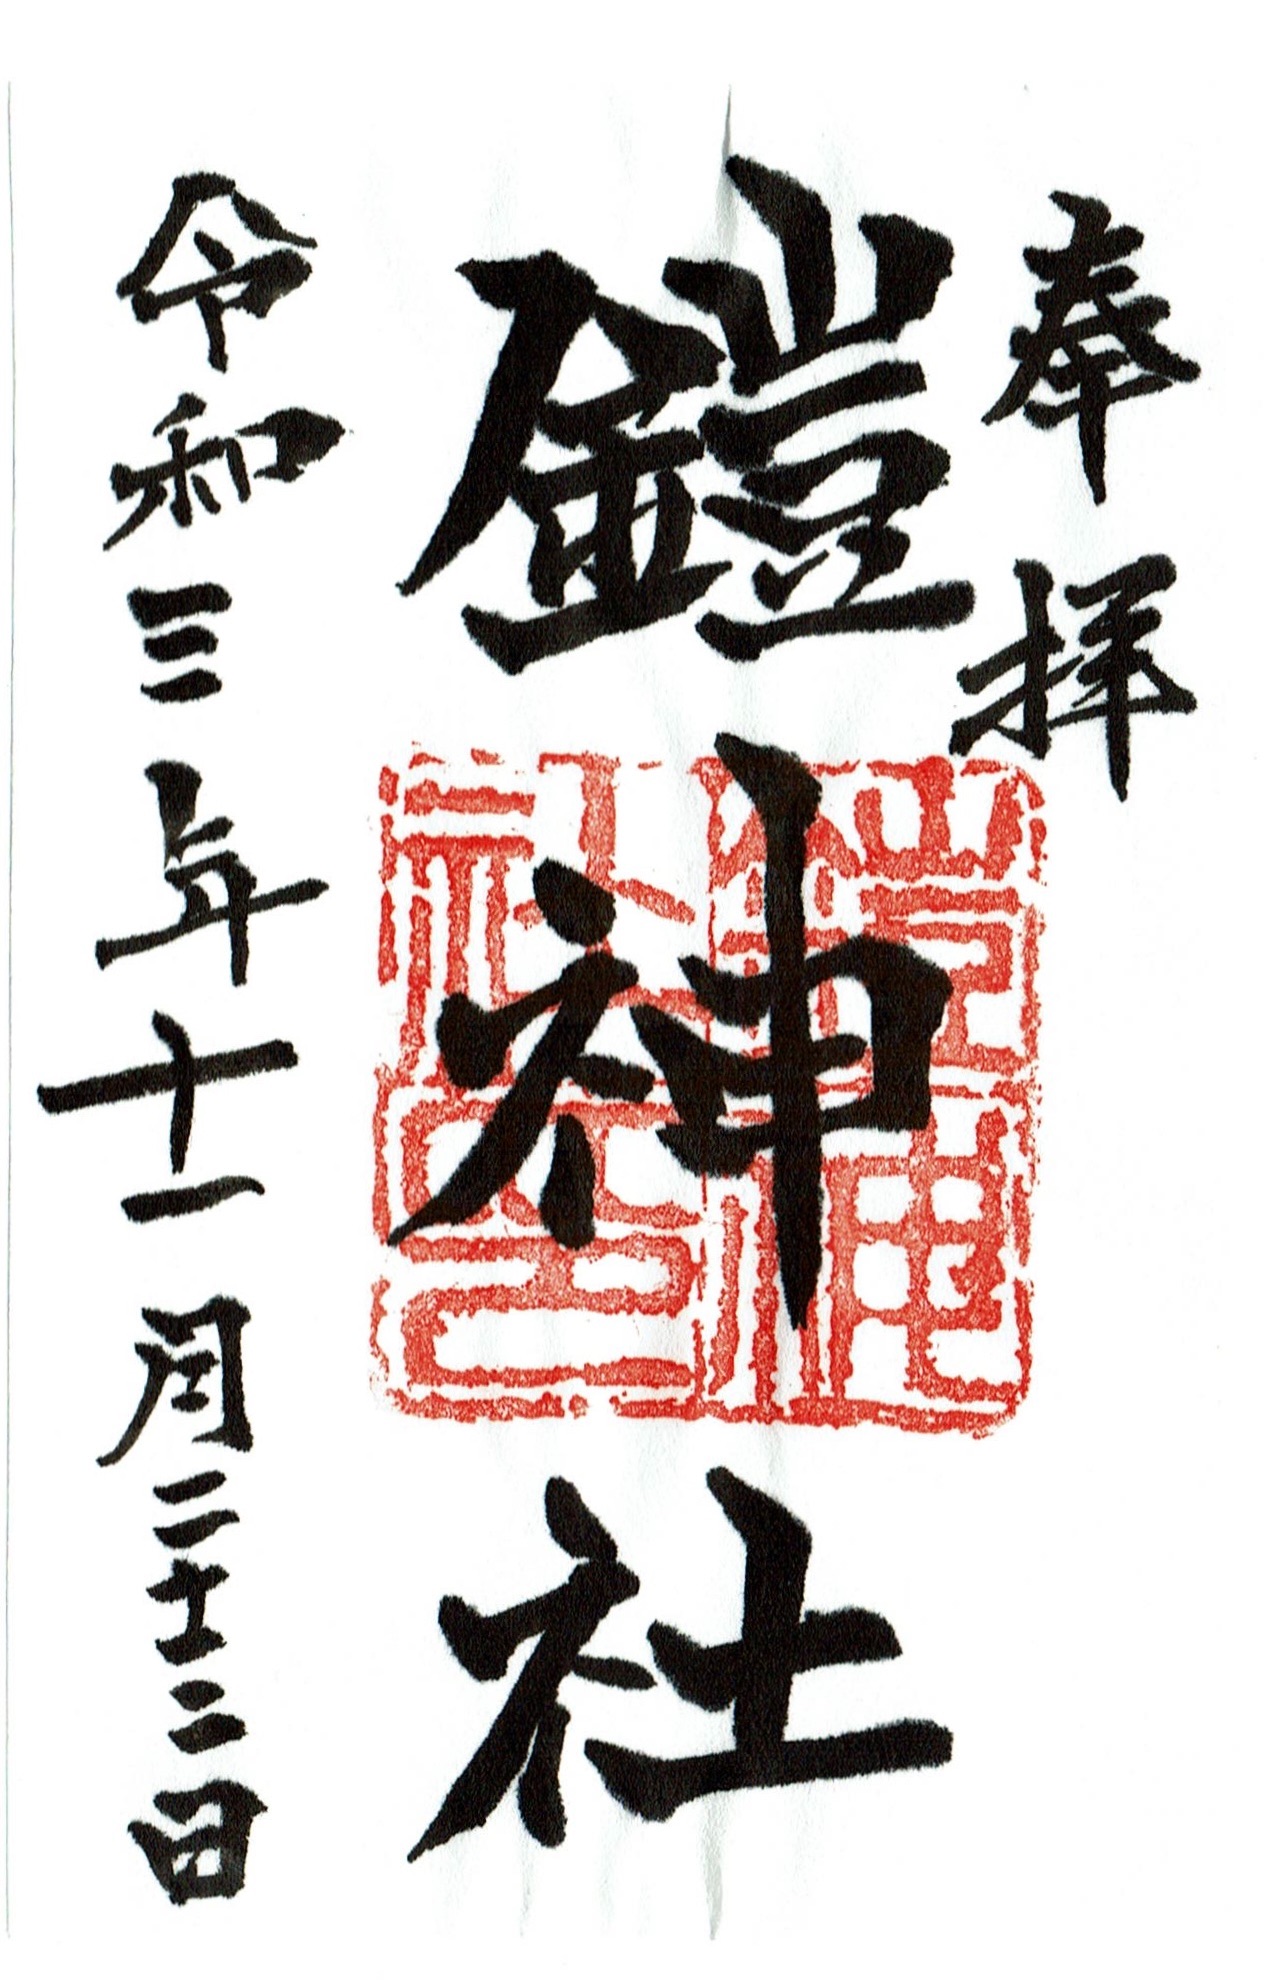 奉拝
鎧神社
令和三年十一月二十二日